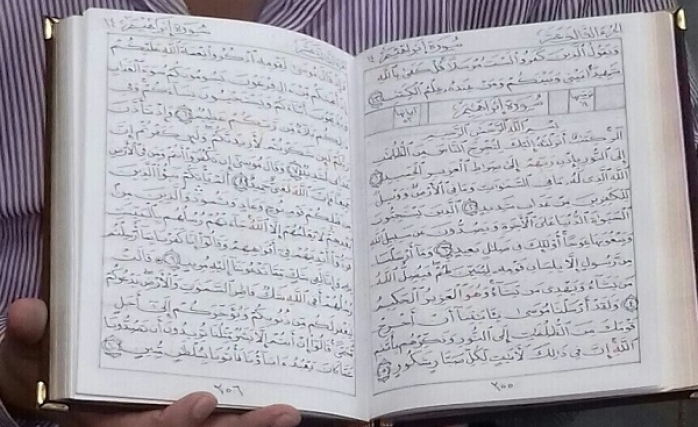 الجزء الثالث عشر سورة إبراهيم ١٤
ويقول الذين كفروا لست مرسلا قل كفى بالله
شهيدا بيني وبينكم ومن عنده علم الكتب ٤٣
سورة إبراهيم
بسم الله الرحمن الرحيم
الر كتب أنزلنه إليك لتخرج الناس من الظلمت
إلى النور بإذن ربهم إلى صراط العزيز الحميد ١
الله الذي له ما في السموت وما في الأرض وويل
للكفرين من عذاب شديد ٢ الذين يستحبون
الحيوة الدنيا على الأخرة ويصدون عن سبيل الله
ويبغونها عوجا أولئك في ضلل بعيد ٣ وما أرسلنا
من رسول إلا بلسان قومه ليبين لهم فيضل الله
من يشاء ويهدي من يشاء وهو العزيز الحكيم
٤ ولقد أرسلنا موسى بايتنا أن أخرج
قومك من الظلمت إلى النور وذكرهم بأيىم
الله إن في ذلك لأيت لكل صبار شكور ٥
٢٥٥
سورة إبراهيم ١٤
وإذ قال موسى لقومه اذكروا نعمة الله عليكم
إذ أنجىكم من ءال فرعون يسومونكم سوء العذاب
ويذبحون أبناءكم ويستحيون نساءكم وفي
ذلكم بلاء من ربكم عظيم ٦ وإذ تأذن
ربكم لئن شكرتم لأزيدنكم ولئن كفرتم إن
عذابي لشديد ٧ وقال موسى إن تكفروا أنتم ومن في الأرض
جميعا فإن الله لغني حميد ٨ ألم يأتكم نبؤا الذين
من قبلكم قوم نوح وعاد وثمود والذين من
بعدهم لا يعلمهم إلا الله جاءتهم رسلهم بالبينت
فردوا أيديهم في أفوههم وقالوا إنا كفرنا بما أرسلتم
به وإنا لفي شك مما تدعوننا إليه مريب ٩ قالت
رسلهم أفي الله شك فاطر السموت والأرض يدعوكم
ليغفر لكم من ذنوبكم ويؤخركم إلى أجل
مسمى قالوا إن أنتم إلا بشر مثلنا تريدون أن تصدونا
عما كان يعبد ءاباؤنا فأتونا بسلطن مبين ١٠
٢٥٦